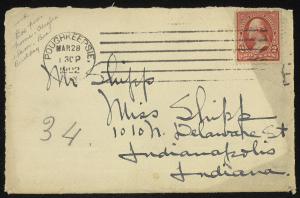 POUGHKEEPSIE,
MAR 28
Mr Shipp
Miss Shipp
1010 N. Delaware St
Indianapolis
Indiana.
34.